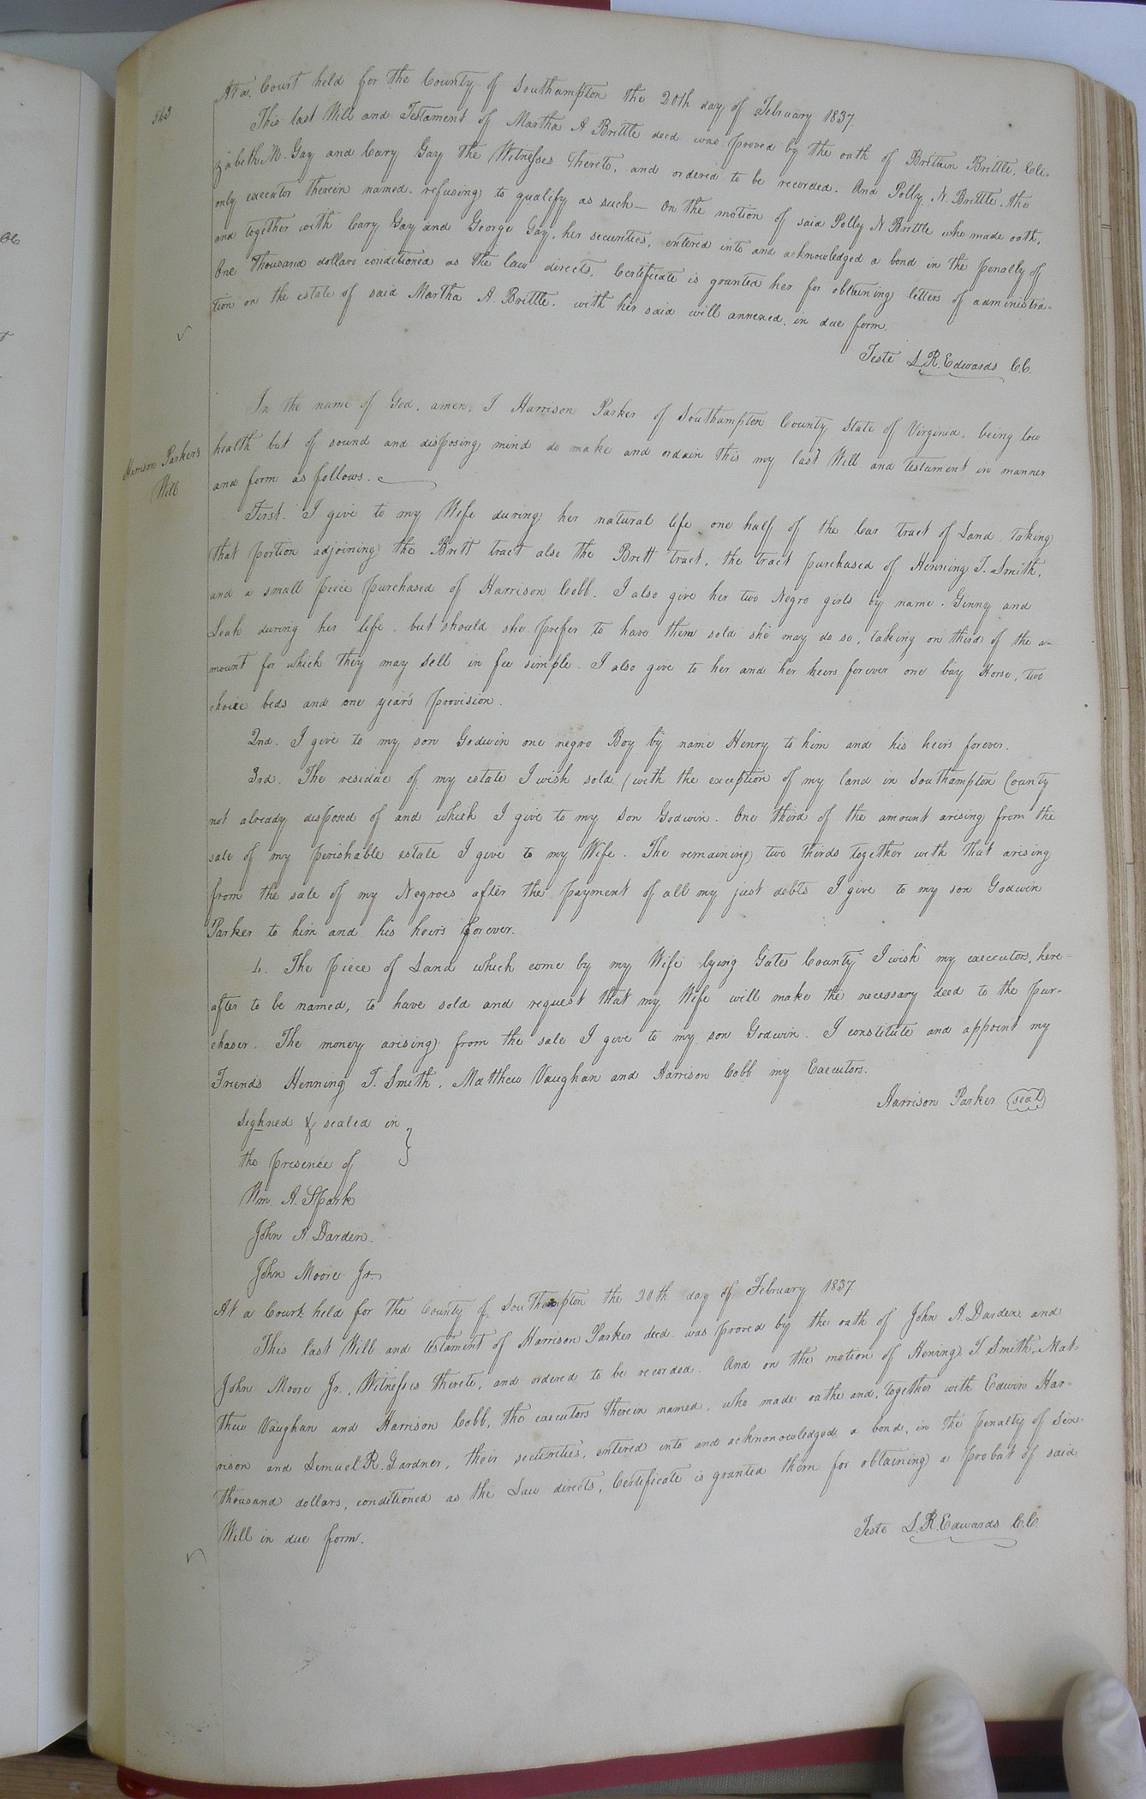 343
At a Court held for the County of Southampton the 20th day of February 1837
This last Will and Testament of Martha A Brittle decd was proved by the oath of Britain Brittle, Eli-
zabeth M. Gay and Cary Gay the Witnesses thereto, and ordered to be recorded. And Polly N. Brittle, the
only executor therein named, refusing to qualify as such — On the motion of said Polly N Brittle who made oath,
and together with Cary Gay and George Gay, her securities, entered into and acknowledged a bond in the penalty of
One Thousand dollars conditioned as the law directs, Certificate is granted her for obtaining letters of administra-
tion on the estate of said Martha A. Brittle, with her said will annexed, in due form.
Teste L. R. Edwards C.C.
Harrison Parker's
Will
In the name of God, amen, I Harrison Parker of Southampton County State of Virginia, being low
health but of sound and disposing mind do make and ordain this my last Will and testament in manner
and form as follows.
First. I give to my Wife during her natural life one half of the Car tract of Land taking
that portion adjoining the Brett tract also the Brett tract, the tract purchased of Henning T. Smith,
and a small piece purchased of Harrison Cobb. I also give her two Negro girls by name. Ginny and
Leah during her life. but should she prefer to have them sold she may do so, taking on third of the a-
mount for which they may sell in fee simple. I also give to her and her heirs forever one bay Horse, two
choice beds and one year's provision.
2nd. I give to my son Godwin one negro Boy by name Henry to him and his heirs forever.
3rd. The residue of my estate I wish sold (with the exception of my land in Southampton County
not already disposed of and which I give to my son Godwin. One third of the amount arising from the
sale of my perishable estate I give to my Wife. The remaining two thirds together with that arising
from the sale of my Negroes after the payment of all my just debts I give to my son Godwin
Parker to him and his heirs forever.
4. The piece of Land which come by my Wife lying Gates County I wish my executors, here-
after to be named, to have sold and request that my Wife will make the necessary deed to the pur-
chaser. The money arising from the sale I give to my son Godwin. I constitute and appoint my
Friends Henning T. Smith, Matthew Vaughan and Harrison Cobb my Executors.
Harrison Parker (seal)
Sighned & sealed in
the presence of
Wm. A. Spark
John A Darden.
John Moore Jr
At a Court held for the County of Southampton the 20th day of February 1837
This last Will and testament of Harrison Parker decd. was proved by the oath of John A. Darden and
John Moore Jr., Witnesses thereto, and ordered to be recorded. And on the motion of Hening T Smith, Mat-
thew Vaughan and Harrison Cobb, the executors therein named, who made oathe and, together with Edwin Har-
rison and Lemuel R. Gardner, their securities, entered into and acknonowledged a bond, in the penalty of Six
thousand dollars, conditioned as the Law directs, Certificate is granted them for obtaining a probat of said
Will in due form.
Teste L. R. Edwards C.C